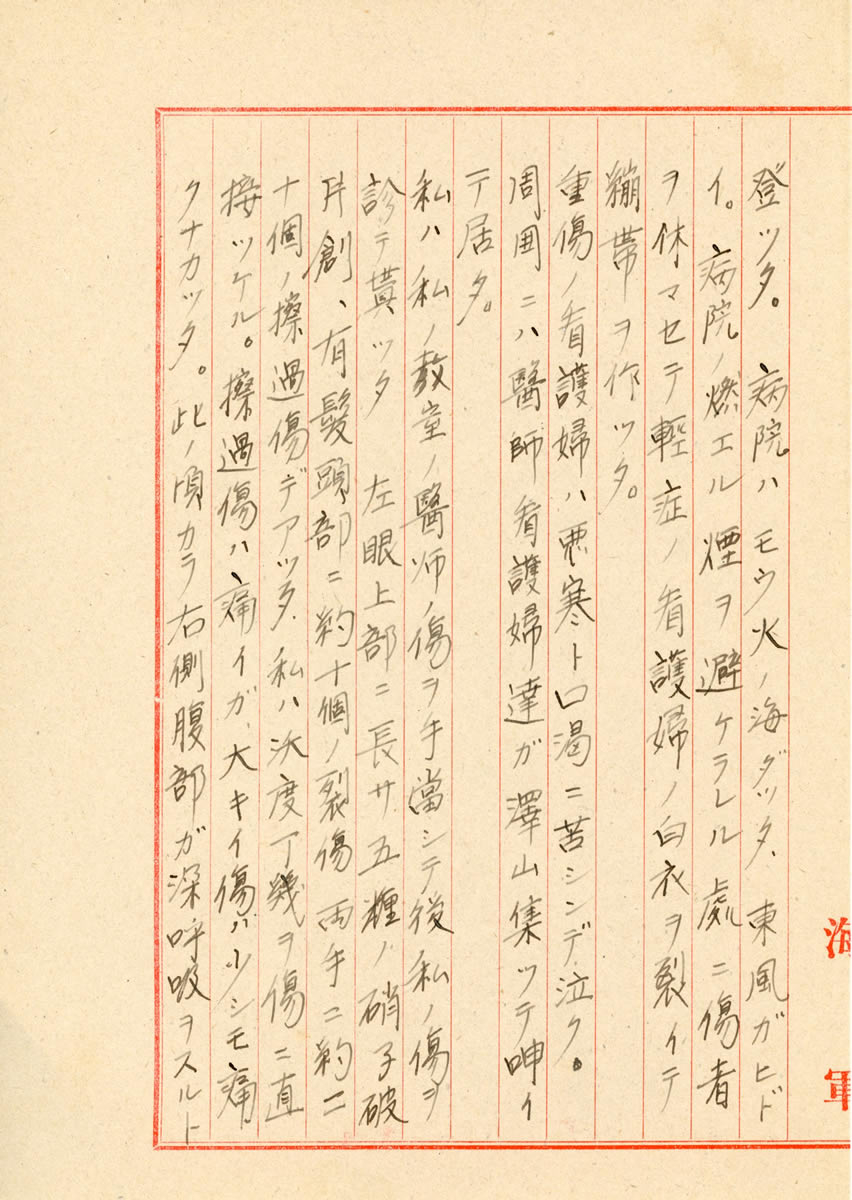 登ツタ。病院ハモウ火ノ海ダッタ、東風ガヒド
イ。病院ノ燃エル煙ヲ避ケラレル處ニ傷者
ヲ休マセテ輕症ノ看護婦ノ白衣ヲ裂イテ
繃帯ヲ作ッタ。
重傷ノ看護婦ハ悪寒ト口渇ニ苦シンデ泣ク。
周囲ニハ醫師看護婦達ガ澤山集ッテ呻イ
テ居タ。
私ハ私ノ教室ノ醫師ノ傷ヲ手當シテ後私ノ傷ヲ
診テ貰ッタ 左眼上部ニ長サ五糎ノ硝子破
片創、有髪頭部ニ約十個ノ裂傷 両手ニ約二
十個ノ擦過傷デアッタ、私ハ沃度丁幾ヲ傷ニ直
接ツケル。擦過傷ハ痛イガ、大キイ傷ハ少シモ痛
クナカッタ。此ノ頃カラ右側腹部ガ深呼吸ヲスルト
海軍